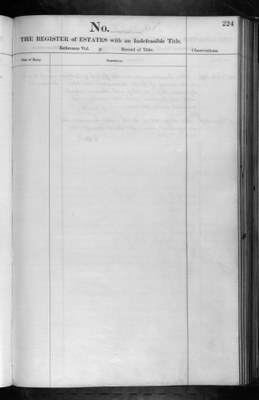 224
No.
THE REGISTER of ESTATES with an Indefeasible Title.
Reference Vol. p. Record of Titles. Observations.
Date of Entry. Description.